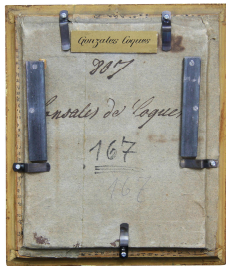 Gonzales Coques
807
Gonsales de Coques
167
167